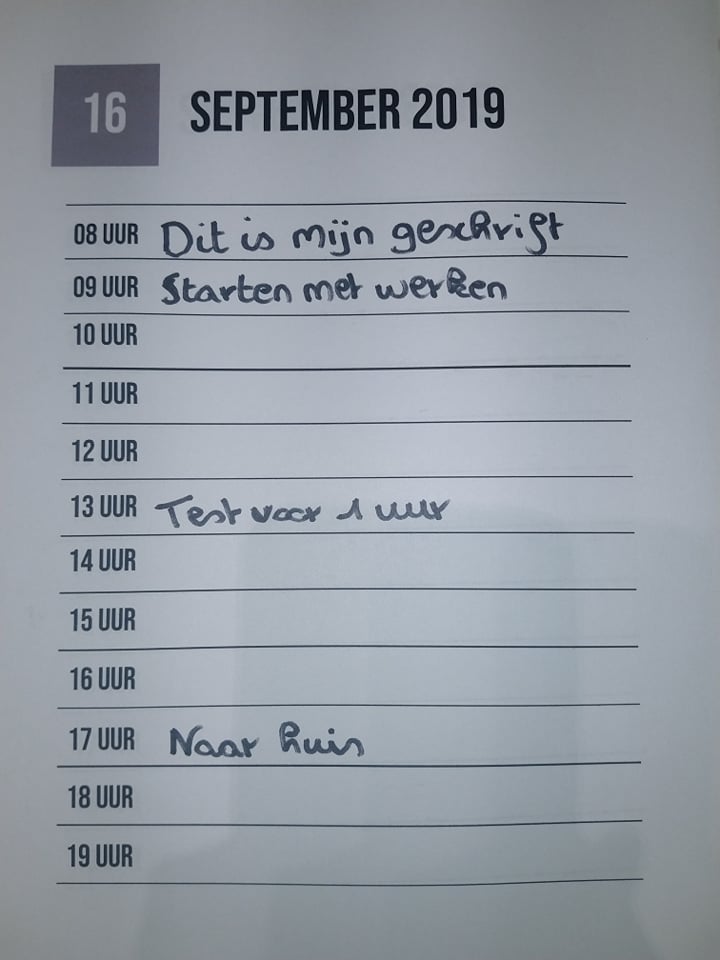 16 SEPTEMBER 2019
08 UUR Dit is mijn geschrift
09 UUR Starten met werken
10 UUR
11 UUR
12 UUR
13 UUR Test voor 1 uur
14 UUR
15 UUR
16 UUR
17 UUR Naar huis
18 UUR
19 UUR